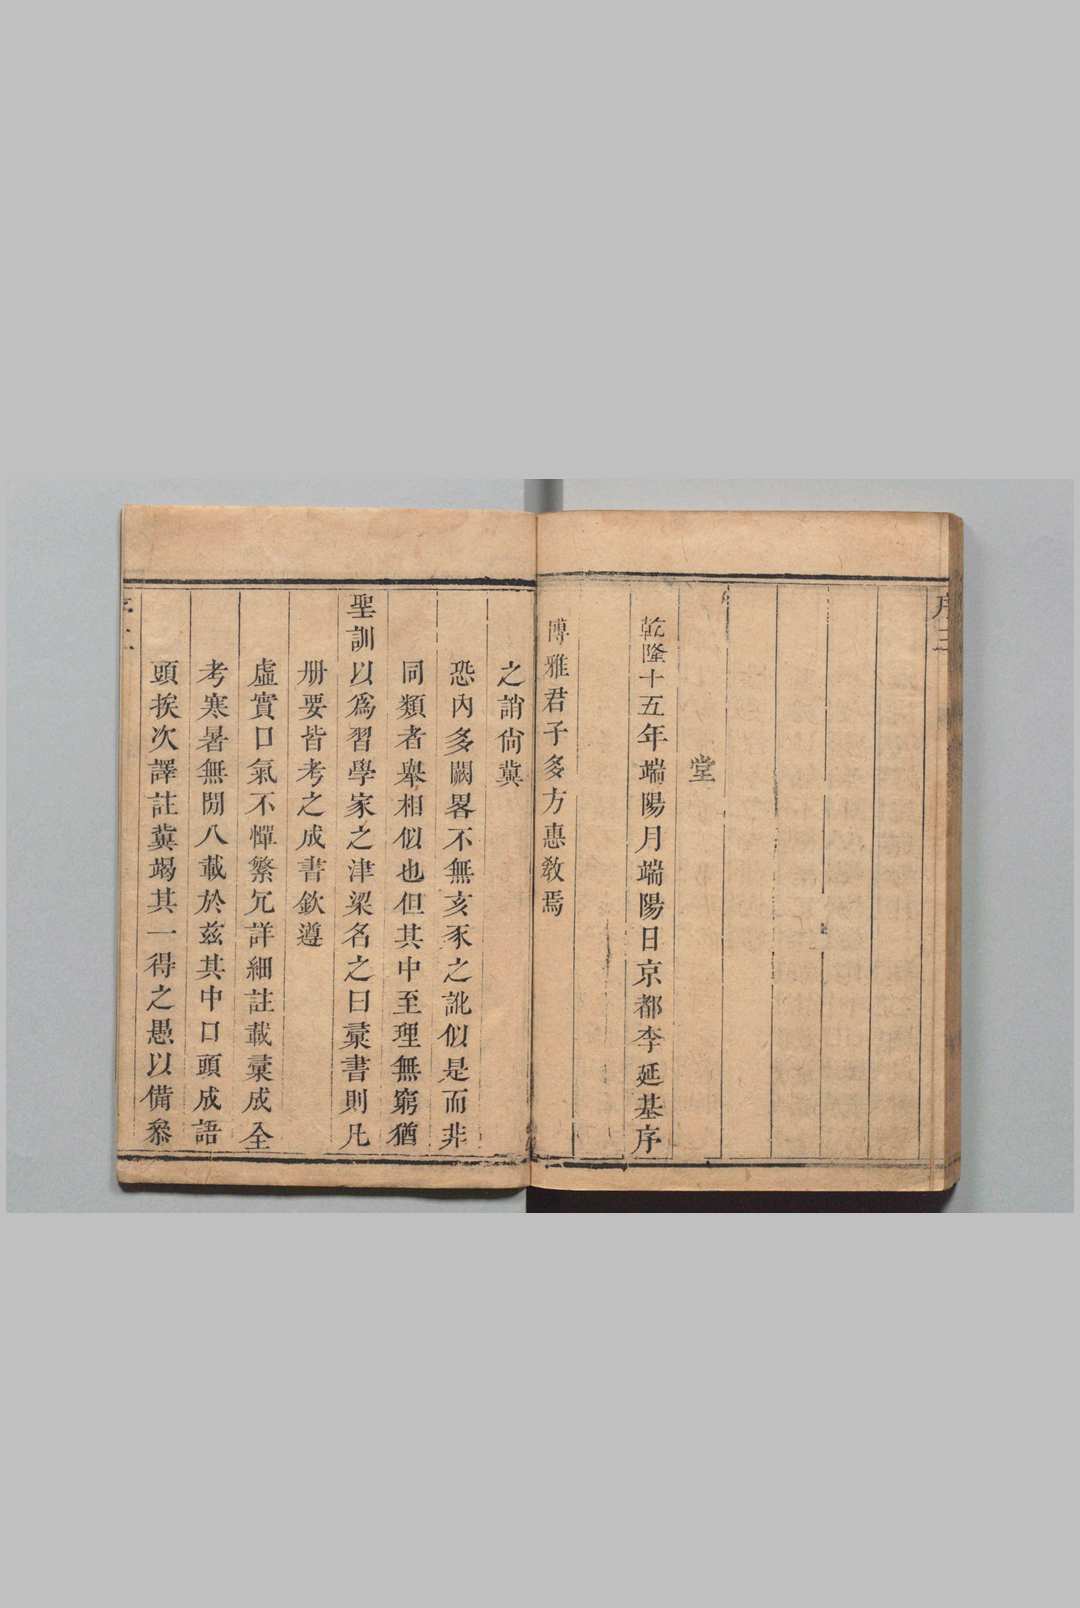 頭挨次譯註冀竭其一得之愚以備叅
考寒暑無閒八載於兹其中口頭成語
虛實口氣不憚繁冗詳細註載彚成全
册要皆考之成書欽遵
聖訓以爲習學家之津梁名之曰彚書則凡
同類者舉相似也但其中至理無窮猶
恐内多闕畧不無亥豕之訛似是而非
之誚尚冀
博雅君子多方惠教焉
乾隆十五年端陽月端陽日京都李延基序
堂
序三